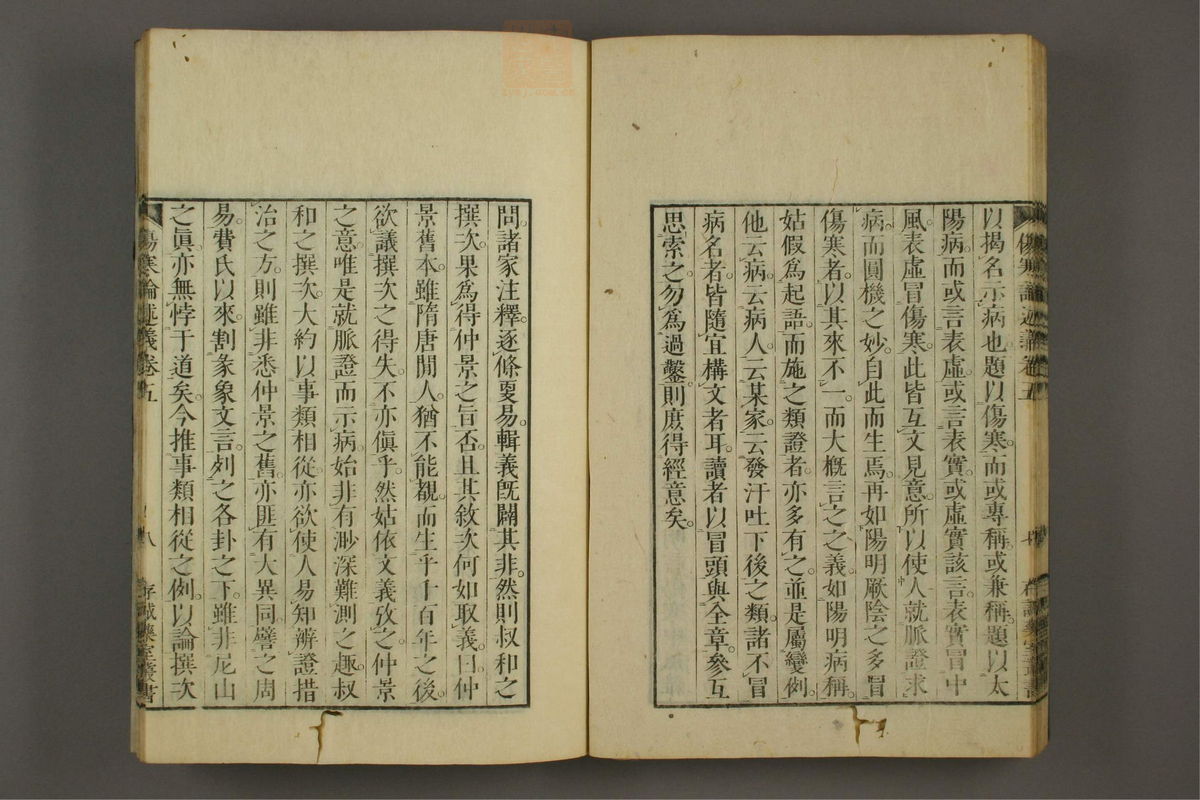 以揭名示病也題以傷寒而或專稱或兼稱題以太
陽病而或言表虛或言表實或虛實該言表實冒中
風表虛冒傷寒此皆互文見意所以使人就脈證求
病而圓機之妙自此而生焉再如陽明厥陰之多冒
傷寒者以其來不一而大概言之之義如陽明病稱
姑假爲起語而施之類證者亦多有之並是屬變例
他云病云病人云某家云發汗吐下後之類諸不冒
病名者皆隨宜構文者耳讀者以冒頭與全章參互
思索之勿爲過鑿則庶得經意矣
問諸家注釋逐條更易輯義既闢其非然則叔和之
撰次果爲得仲景之旨否且其敘次何如取義曰仲
景舊本雖隋唐閒人猶不能覩而生乎千百年之後
欲議撰次之得失不亦傎乎然姑依文義攷之仲景
之意唯是就脈證而示病始非有渺深難測之趣叔
和之撰次大約以事類相從亦欲使人易知辨證措
治之方則雖非悉仲景之舊亦匪有大異同譬之周
易費氏以來割彖象文言列之各卦之下雖非尼山
之眞亦無悖于道矣今推事類相從之例以論撰次
傷寒論述義卷五
八
存誠藥室叢書